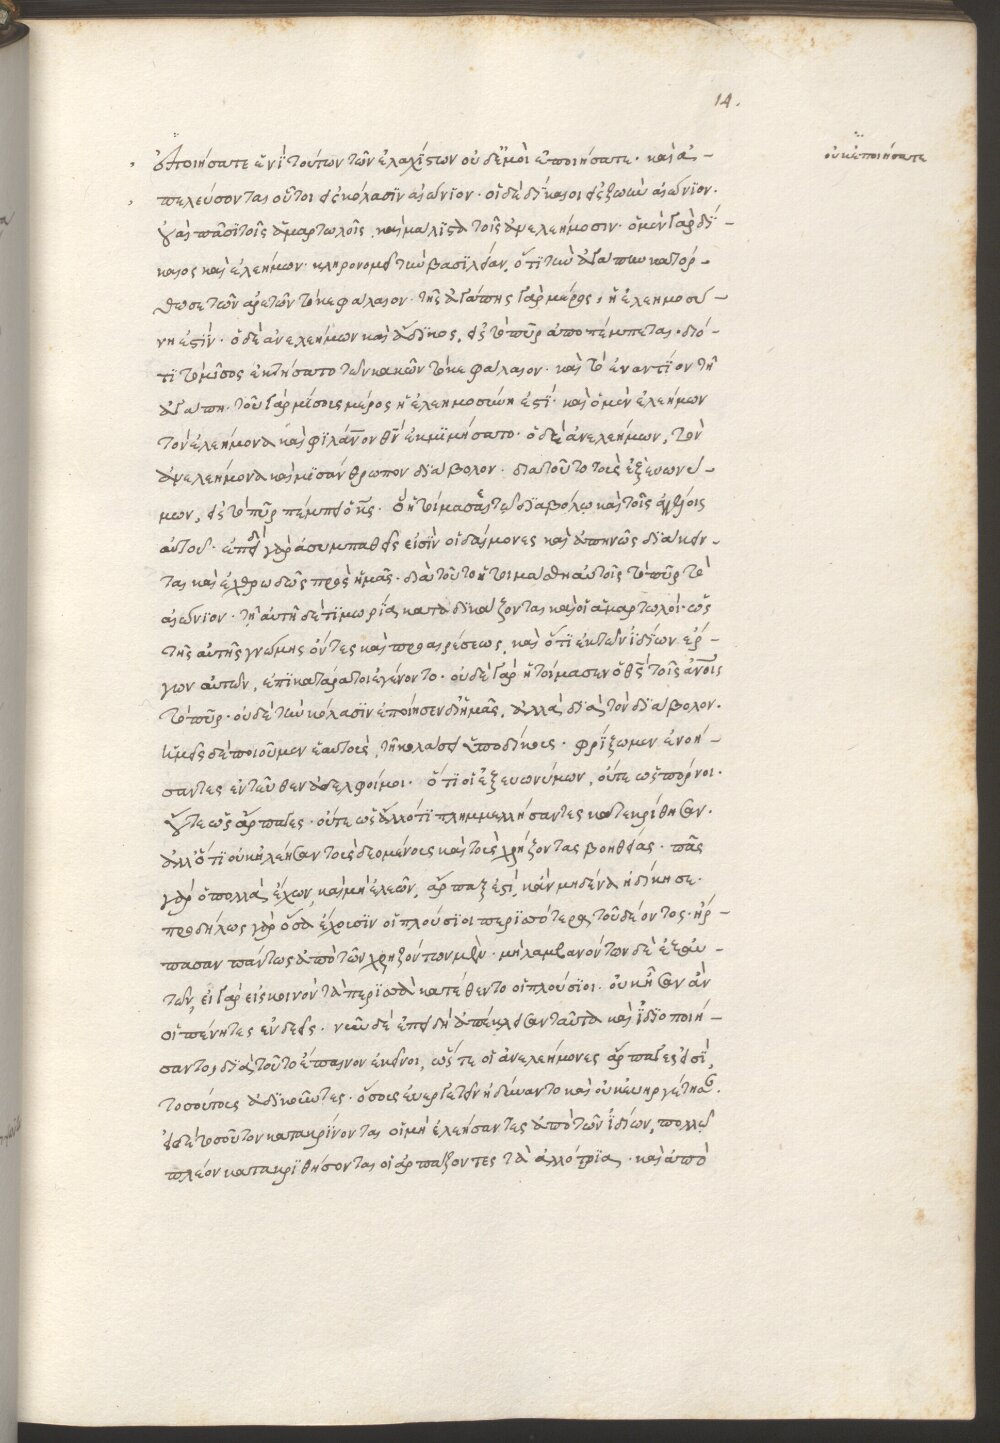 14.
οὐκ ἐποιήσατε
ἐποιήσατε ἑνὶ τούτων τῶν ἐλαχίστων οὐδὲ ἐμοὶ ἐποιήσατε· καὶ ἀ–
πελεύσονται οὗτοι εἰς κόλασιν αἰώνιον· οἱ δὲ δίκαιοι εἰς ζωὴν αἰώνιον.
οὐαὶ πᾶσι τοῖς ἁμαρτωλοῖς, καὶ μάλιστα τοῖς ἀνελεήμοσιν· ὁ μὲν γὰρ δί–
καιος καὶ ἐλεήμων· κληρονομεῖ τὴν βασιλείαν, ὅτι τὴν ἀγάπην κατόρ–
θωσε τῶν ἀρετῶν τὸ κεφάλαιον· τῆς ἀγάπης γὰρ μέρος, ἡ ἐλεημοσύ–
νη ἐστίν· ὁ δὲ ἀνελεήμων καὶ ἄδικος, εἰς τὸ πῦρ ἀποπέμπεται· διό–
τι τὸ μῖσος ἐκτήσατο τῶν κακῶν τὸ κεφάλαιον· καὶ τὸ ἐναντίον τῇ
ἀγάπῃ· τοῦ γὰρ μίσους μέρος ἡ ἐλεημοσύνη ἐστί· καὶ ὁ μὲν ἐλεήμων
τὸν ἐλεήμονα καὶ φιλάνον θν ἐκμιμήσατο· ὁ δὲ ἀνελεήμων, τὸν
ἀνελεήμονα καὶ μισάνθρωπον διάβολον· διὰ τοῦτο τοὺς ἐξ εὐωνύ–
μων, εἰς τὸ πῦρ πέμπει ὁ κς· ὃ ἡτοίμασται τῷ διαβόλῳ καὶ τοῖς ἀγγέλοις
αὐτοῦ· ἐπεὶ γὰρ ἀσυμπαθεῖς εἰσὶν οἱ δαίμονες καὶ ἀπηνῶς διάκειν–
ται καὶ ἐχθρωδῶς πρὸς ἡμᾶς· διὰ τοῦτο ἡτοιμάσθη αὐτοῖς τὸ πῦρ τὸ
αἰώνιον· τῇ αὐτῇ δὲ τιμωρίᾳ καταδικάζονται καὶ οἱ ἁμαρτωλοὶ· ὡς
τῆς αὐτῆς γνώμης ὄντες καὶ προαιρέσεως, καὶ ὅτι ἐκ τῶν ἰδίων ἔρ–
γων αὐτῶν, ἐπικατάρατοι ἐγένοντο· οὐδὲ γὰρ ἡτοίμασεν ὁ θς τοῖς ἀνοις
τὸ πῦρ· οὐδὲ τὴν κόλασιν ἐποίησεν δι ἡμᾶς, ἀλλὰ διὰ τὸν διάβολον.
ἡμεῖς δὲ ποιοῦμεν ἑαυτοὺς, τῇ κολάσει ὑποδίκους· φρίξωμεν ἐνοή–
σαντες ἐντεῦθεν ἀδελφοί μοι· ὅτι οἱ ἐξ εὐωνύμων, οὔτε ὡς πόρνοι.
οὔτε ὡς ἅρπαγες· οὔτε ὡς ἄλλό τι πλημμελλήσαντες κατεκρίθησαν.
ἀλλ ὅτι οὐκ ἠλέησαν τοὺς δεομένους καὶ τοὺς χρήζοντας βοηθείας· πᾶς
γὰρ ὁ πολλὰ ἔχων, καὶ μὴ ἐλεῶν, ἅρπαξ ἐστί, κἂν μηδένα ἠδίκησε.
προδήλως γὰρ ὅσα ἔχουσιν οἱ πλούσιοι περισσότερα τοῦ δέοντος· ἥρ–
πασαν πάντως ἀπὸ τῶν χρηζόντων μὲν· μὴ λαμβανόντων δὲ ἐξ αὐ–
τῶν, εἰ γὰρ εἰς κοινὸν τὰ περισσὰ κατέθεντο οἱ πλούσιοι· οὐκ ἦσαν ἂν
οἱ πένητες ἐνδεεῖς· νῦν δὲ ἐπειδὴ ἀπέκλεισαν ταῦτα καὶ ἰδιοποιή–
σαντο, διὰ τοῦτο ἐπείνων ἐκεῖνοι, ὥστε οἱ ἀνελεήμονες ἅρπαγες εἰσὶ,
τοσούτους ἀδικοῦντες· ὅσους εὐεργετεῖν ἠδύναντο καὶ οὐκ εὐηργέτησαν.
εἰ δὲ τοσοῦτον κατακρίνονται οἱ μὴ ἐλεήσαντες ἀπὸ τῶν ἰδίων, πολλῷ
πλέον κατακριθήσονται οἱ ἁρπάζοντες τὰ ἀλλότρια, · καὶ ἀπὸ